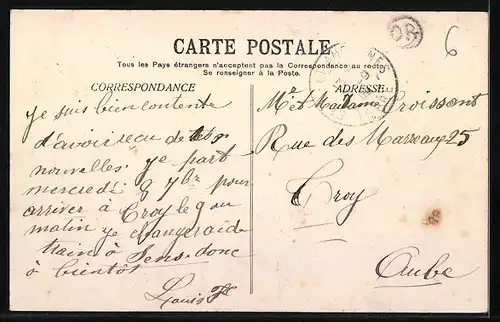 CARTE POSTALE
Tous les Pays étrangers n'acceptent pas la Correspondance au recto
Se renseigner à la Poste.
CORRESPONDANCE
ADRESSE
OR
6
je suis bien contente
d'avoir recu de tes
nouvelles. je part
mercredi 8 7bre pour
arriver à Troy le 9 au
matin je changerai de
train à Sens. donc
à bientôt
Louis
Mr et Madame Croissant
Rue des Marreaux 25
Troy
Aube